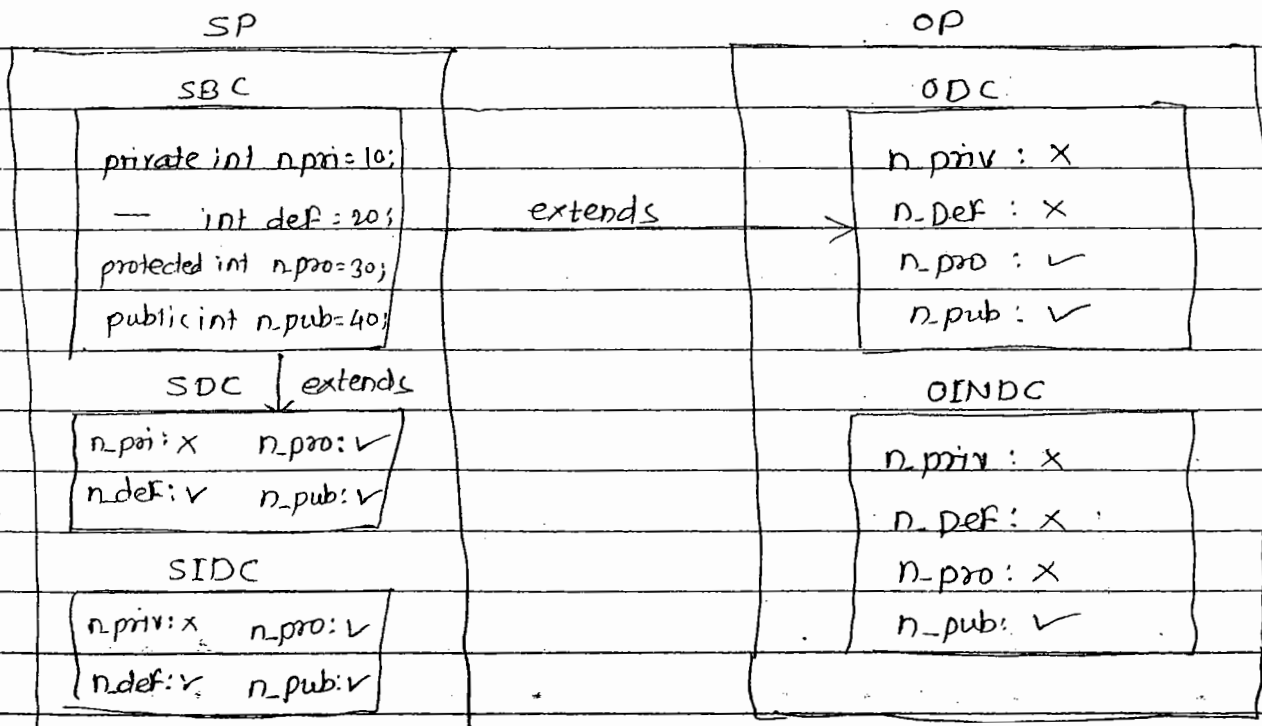 SP
SBC
private int n_pri=10;
— int def = 20;
protected int n_pro=30;
public int n_pub=40;
extends
SDC
extends
n_pri: x n_pro: ✓
n_def: ✓ n_pub: ✓
SIDC
n_priv: x n_pro: ✓
n_def: ✓ n_pub: ✓
OP
ODC
n_priv : x
n_Def : x
n_pro : ✓
n_pub : ✓
OINDC
n_priv : x
n_Def : x
n_pro : x
n_pub: ✓